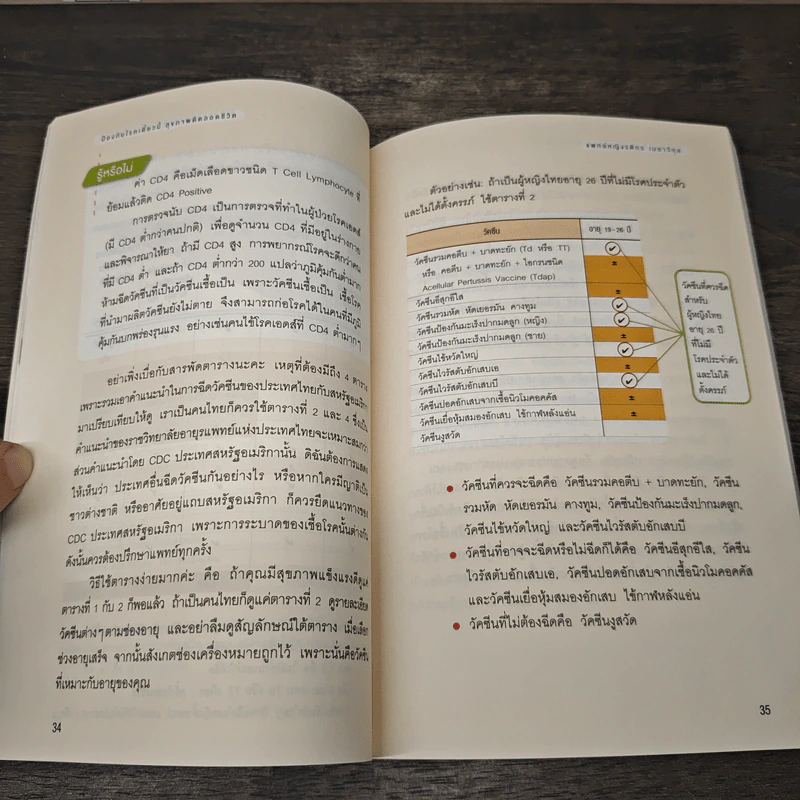 ป้องกันโรคเดี๋ยวนี้ สุขภาพดีตลอดชีวิต
รู้หรือไม่
ค่า CD4 คือเม็ดเลือดขาวชนิด T Cell Lymphocyte ที่
ย้อมแล้วติด CD4 Positive
การตรวจนับ CD4 เป็นการตรวจที่ทำในผู้ป่วยโรคเอดส์
(มี CD4 ต่ำกว่าคนปกติ) เพื่อดูจำนวน CD4 ที่มีอยู่ในร่างกาย
และพิจารณาให้ยา ถ้ามี CD4 สูง การพยากรณ์โรคจะดีกว่าคน
ที่มี CD4 ต่ำ และถ้า CD4 ต่ำกว่า 200 แปลว่าภูมิคุ้มกันต่ำมาก
ห้ามฉีดวัคซีนที่เป็นวัคซีนเชื้อเป็น เพราะวัคซีนเชื้อเป็น เชื้อโรค
ที่นำมาผลิตวัคซีนยังไม่ตาย จึงสามารถก่อโรคได้ในคนที่มีภูมิ
คุ้มกันบกพร่องรุนแรง อย่างเช่นคนไข้โรคเอดส์ที่ CD4 ต่ำมากๆ
อย่าเพิ่งเบื่อกับสารพัดตารางนะคะ เหตุที่ต้องมีถึง 4 ตาราง
เพราะรวมเอาคำแนะนำในการฉีดวัคซีนของประเทศไทยกับสหรัฐอเมริกา
มาเปรียบเทียบให้ดู เราเป็นคนไทยก็ควรใช้ตารางที่ 2 และ 4 ซึ่งเป็น
คำแนะนำของราชวิทยาลัยอายุรแพทย์แห่งประเทศไทยจะเหมาะสมกว่า
ส่วนคำแนะนำโดย CDC ประเทศสหรัฐอเมริกานั้น ดิฉันต้องการแสดง
ให้เห็นว่า ประเทศอื่นฉีดวัคซีนกันอย่างไร หรือหากใครมีญาติเป็น
ชาวต่างชาติ หรืออาศัยอยู่แถบสหรัฐอเมริกา ก็ควรยึดแนวทางของ
CDC ประเทศสหรัฐอเมริกา เพราะการระบาดของเชื้อโรคนั้นต่างกัน
ดังนั้นควรต้องปรึกษาแพทย์ทุกครั้ง
วิธีใช้ตารางง่ายมากค่ะ คือ ถ้าคุณมีสุขภาพแข็งแรงดีดูแค่
ตารางที่ 1 กับ 2 ก็พอแล้ว ถ้าเป็นคนไทยก็ดูแค่ตารางที่ 2 ดูรายละเอียด
วัคซีนต่างๆตามช่องอายุ และอย่าลืมดูสัญลักษณ์ใต้ตาราง เมื่อเลือก
ช่วงอายุเสร็จ จากนั้นสังเกตช่องเครื่องหมายถูกไว้ เพราะนั่นคือวัคซีน
ที่เหมาะกับอายุของคุณ
34
ตัวอย่างเช่น: ถ้าเป็นผู้หญิงไทยอายุ 26 ปีที่ไม่มีโรคประจำตัว
และไม่ได้ตั้งครรภ์ ใช้ตารางที่ 2
วัคซีน อายุ 19-26 ปี
วัคซีนรวมคอตีบ + บาดทะยัก (Td หรือ TT) ✓
หรือ คอตีบ + บาดทะยัก + ไอกรนชนิด ±
Acellular Pertussis Vaccine (Tdap)
วัคซีนอีสุกอีใส ±
วัคซีนรวมหัด หัดเยอรมัน คางทูม ✓
วัคซีนป้องกันมะเร็งปากมดลูก (หญิง) ✓
วัคซีนป้องกันมะเร็งปากมดลูก (ชาย) ±
วัคซีนไข้หวัดใหญ่ ✓
วัคซีนไวรัสตับอักเสบเอ ±
วัคซีนไวรัสตับอักเสบบี ✓
วัคซีนปอดอักเสบจากเชื้อนิวโมคอคคัส ±
วัคซีนเยื่อหุ้มสมองอักเสบ ไข้กาฬหลังแอ่น ±
วัคซีนงูสวัด
วัคซีนที่ควรฉีด
สำหรับ
ผู้หญิงไทย
อายุ 26 ปี
ที่ไม่มี
โรคประจำตัว
และไม่ได้
ตั้งครรภ์
● วัคซีนที่ควรจะฉีดคือ วัคซีนรวมคอตีบ + บาดทะยัก, วัคซีน
รวมหัด หัดเยอรมัน คางทูม, วัคซีนป้องกันมะเร็งปากมดลูก,
วัคซีนไข้หวัดใหญ่ และวัคซีนไวรัสตับอักเสบบี
● วัคซีนที่อาจจะฉีดหรือไม่ฉีดก็ได้คือ วัคซีนอีสุกอีใส, วัคซีน
ไวรัสตับอักเสบเอ, วัคซีนปอดอักเสบจากเชื้อนิวโมคอคคัส
และวัคซีนเยื่อหุ้มสมองอักเสบ ไข้กาฬหลังแอ่น
● วัคซีนที่ไม่ต้องฉีดคือ วัคซีนงูสวัด
35